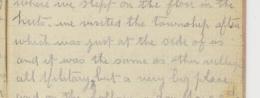 where we slept on the floor in the
huts. we visited the township after
which was just at the side of us
and it was the same as other villages
all military but a very big place
and on the